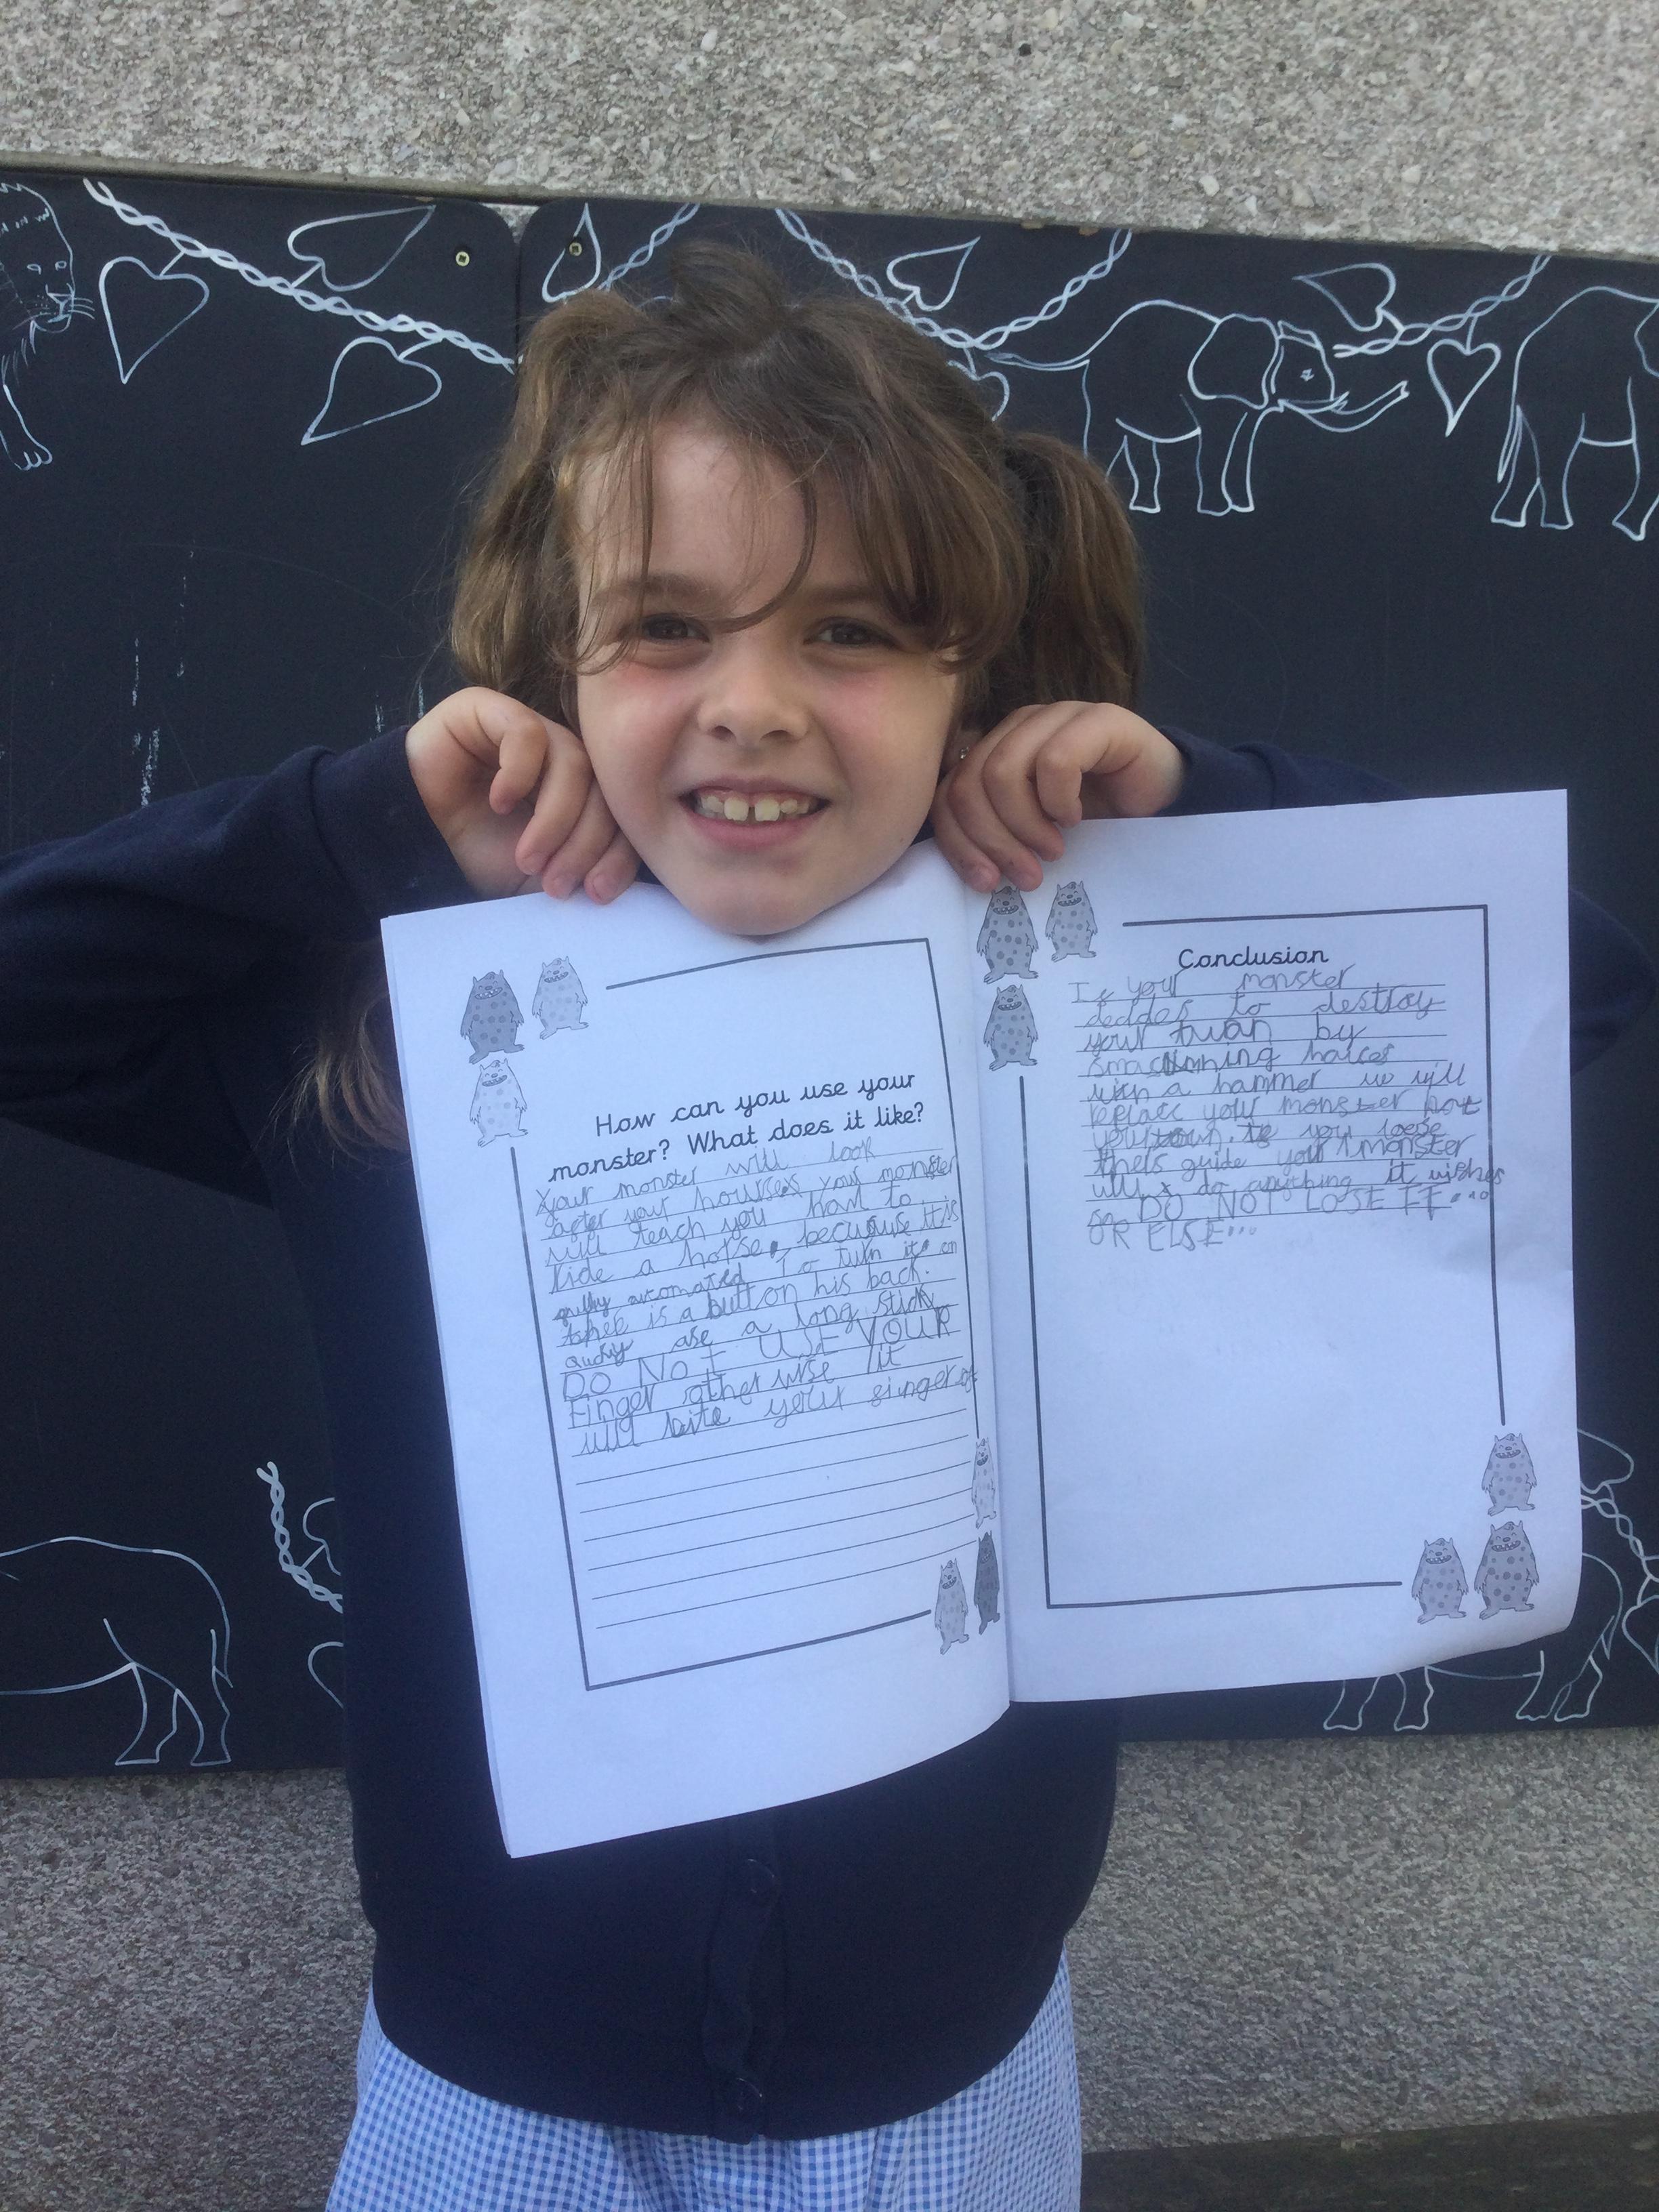 How can you use your
monster? What does it like?
Your monster will look
after your houses your monster
will teach you how to
ride a horse, because it is
fully automated To turn it on
there is a button on his back.
use a long stick
DO NOT USE YOUR
Finger otherwise it
will bite your finger of
Conclusion
If your monster
decides to destroy
your by
smashing
with a hammer we will
replace your monster not
your if you loose
this guide your monster
will do anything it wishes
so DO NOT LOSE IT...
OR ELSE...